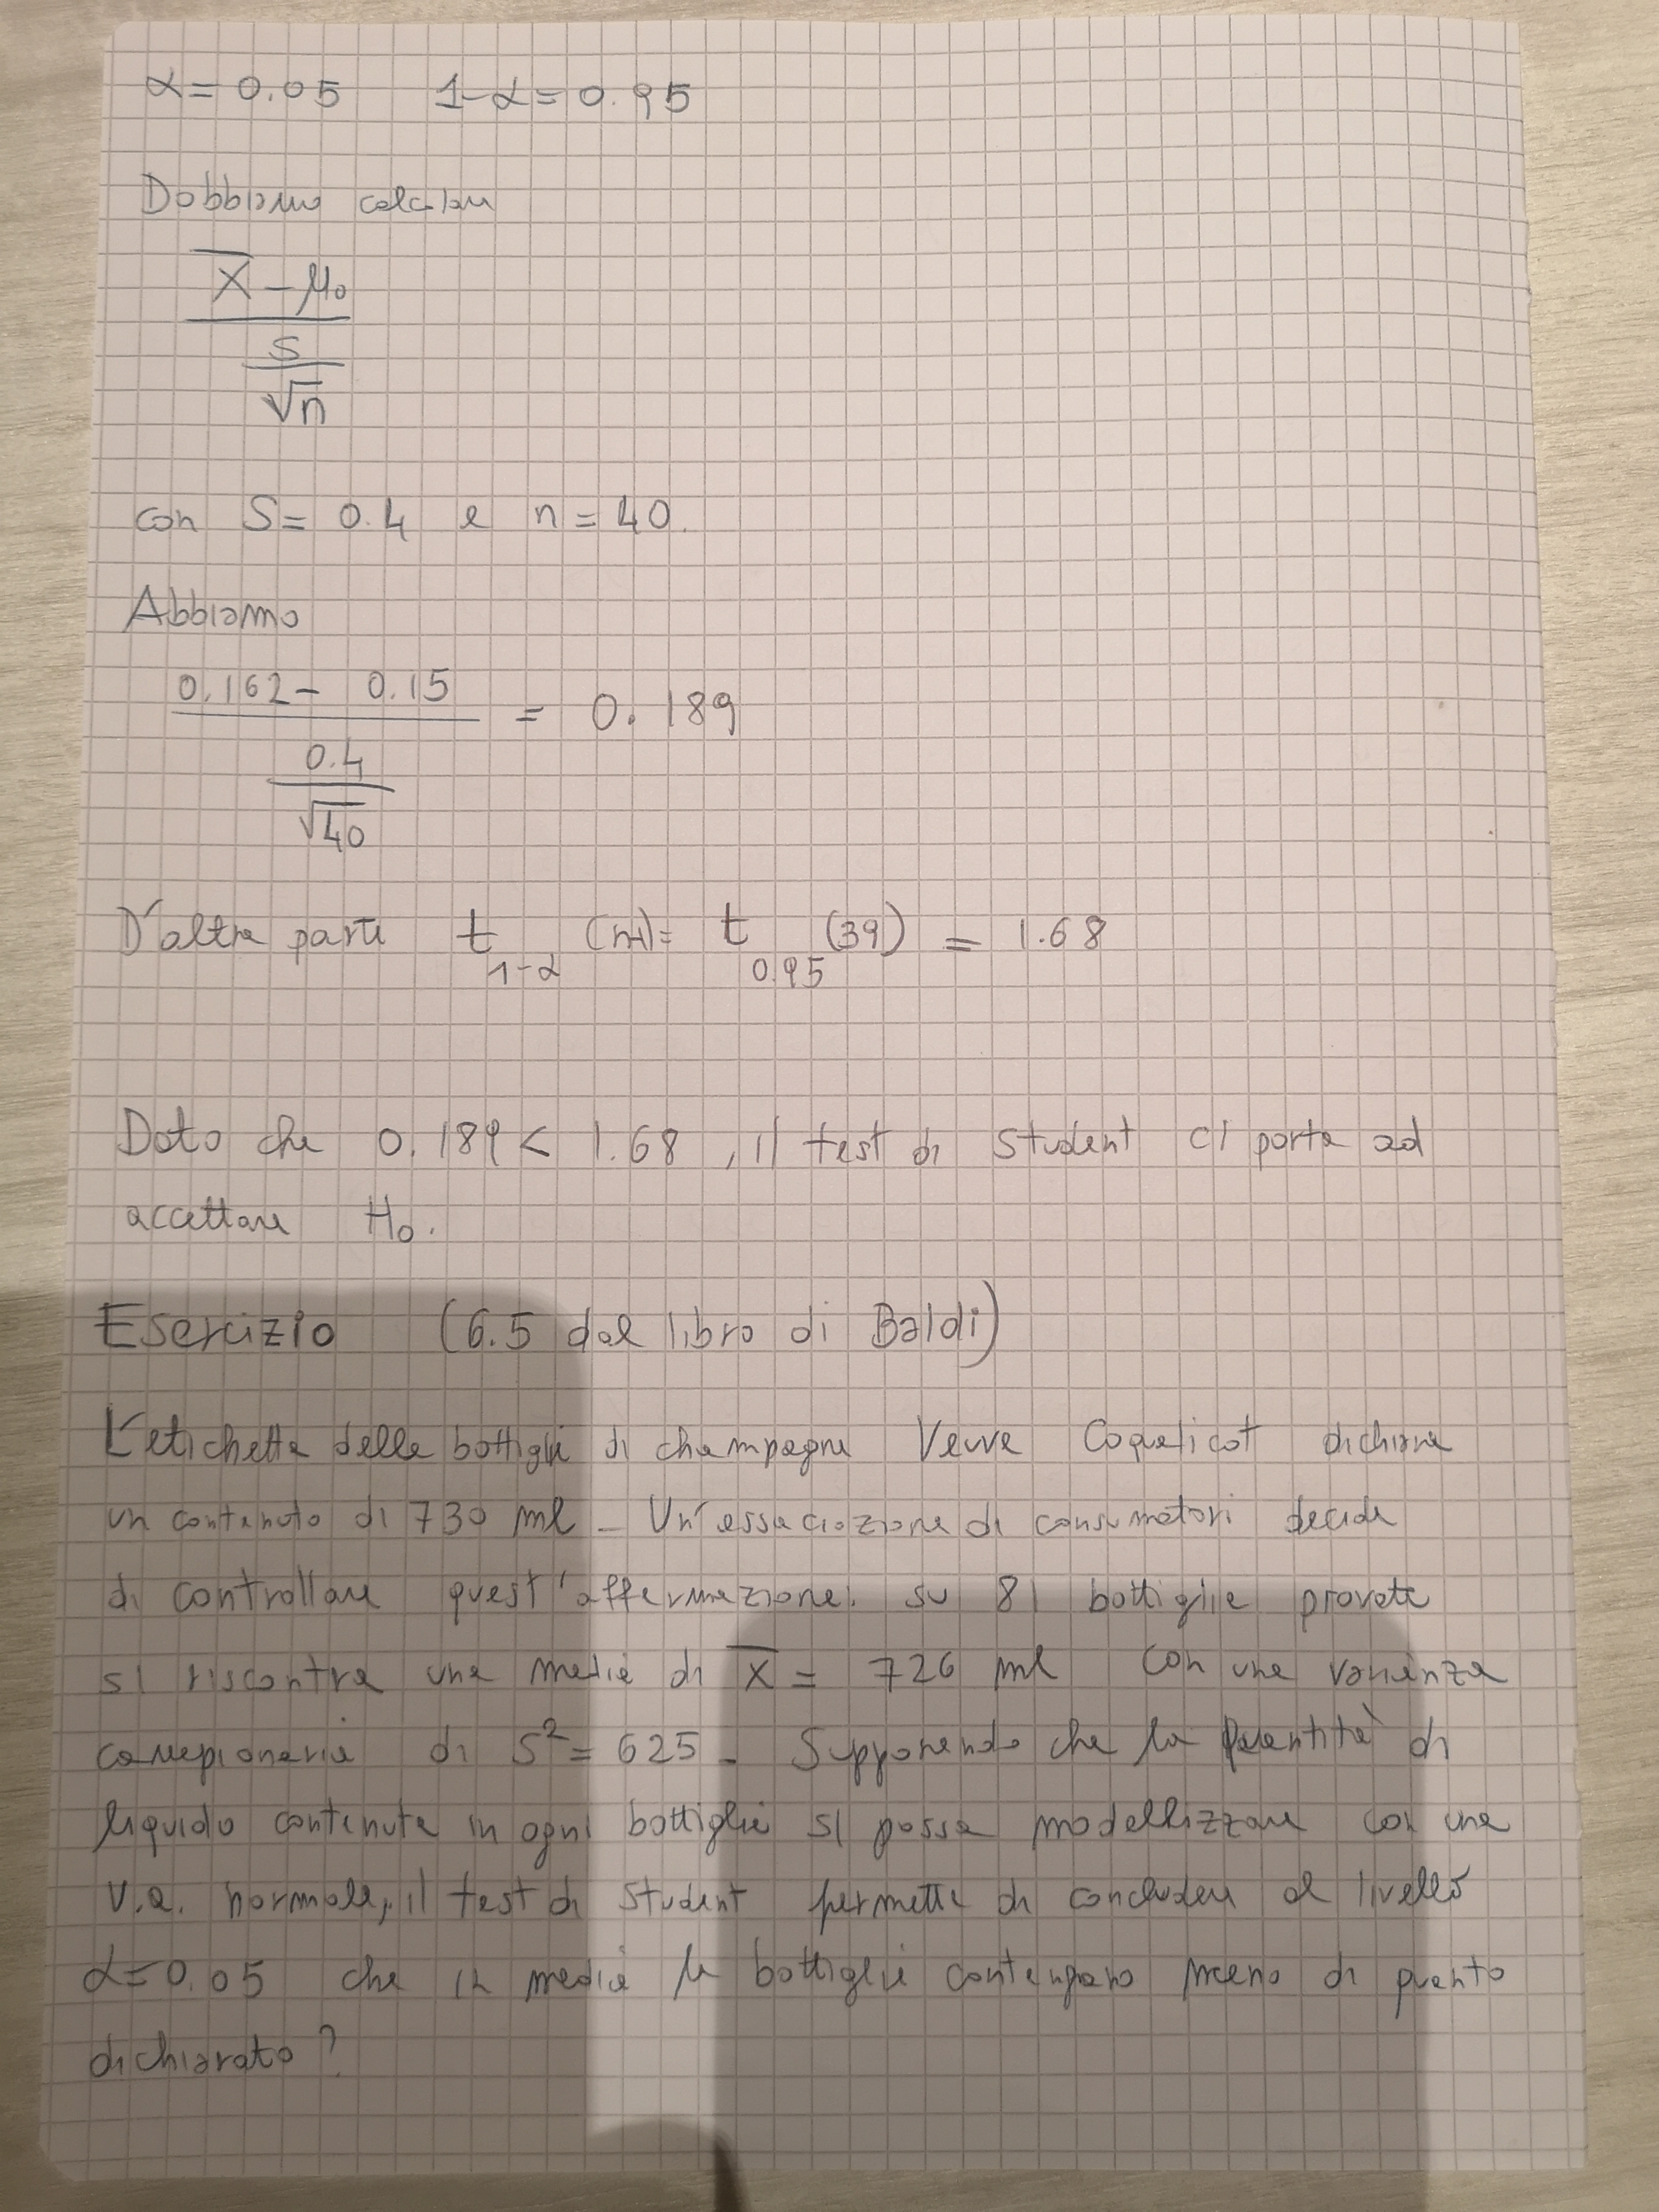 α = 0.05 1-α = 0.95
Dobbiamo calcolare
X̄ - μ₀
S
√n
con S = 0.4 e n = 40.
Abbiamo
0.162 - 0.15
= 0.189
0.4
√40
D'altra parte t₁₋α (n-1) = t₀.₉₅ (39) = 1.68
Dato che 0.189 < 1.68, il test di Student ci porta ad
accettare H₀.
Esercizio (6.5 dal libro di Baldi)
L'etichetta delle bottiglie di champagne Veuve Coquelicot dichiara
un contenuto di 730 ml - Un'associazione di consumatori decide
di controllare quest'affermazione. su 81 bottiglie provate
si riscontra una media di X̄ = 726 ml con una varianza
campionaria di S² = 625 - Supponendo che la quantità di
liquido contenuta in ogni bottiglia si possa modellizzare con una
v.a. normale, il test di Student permette di concludere al livello
α = 0.05 che in media le bottiglie contengano meno di quanto
dichiarato?